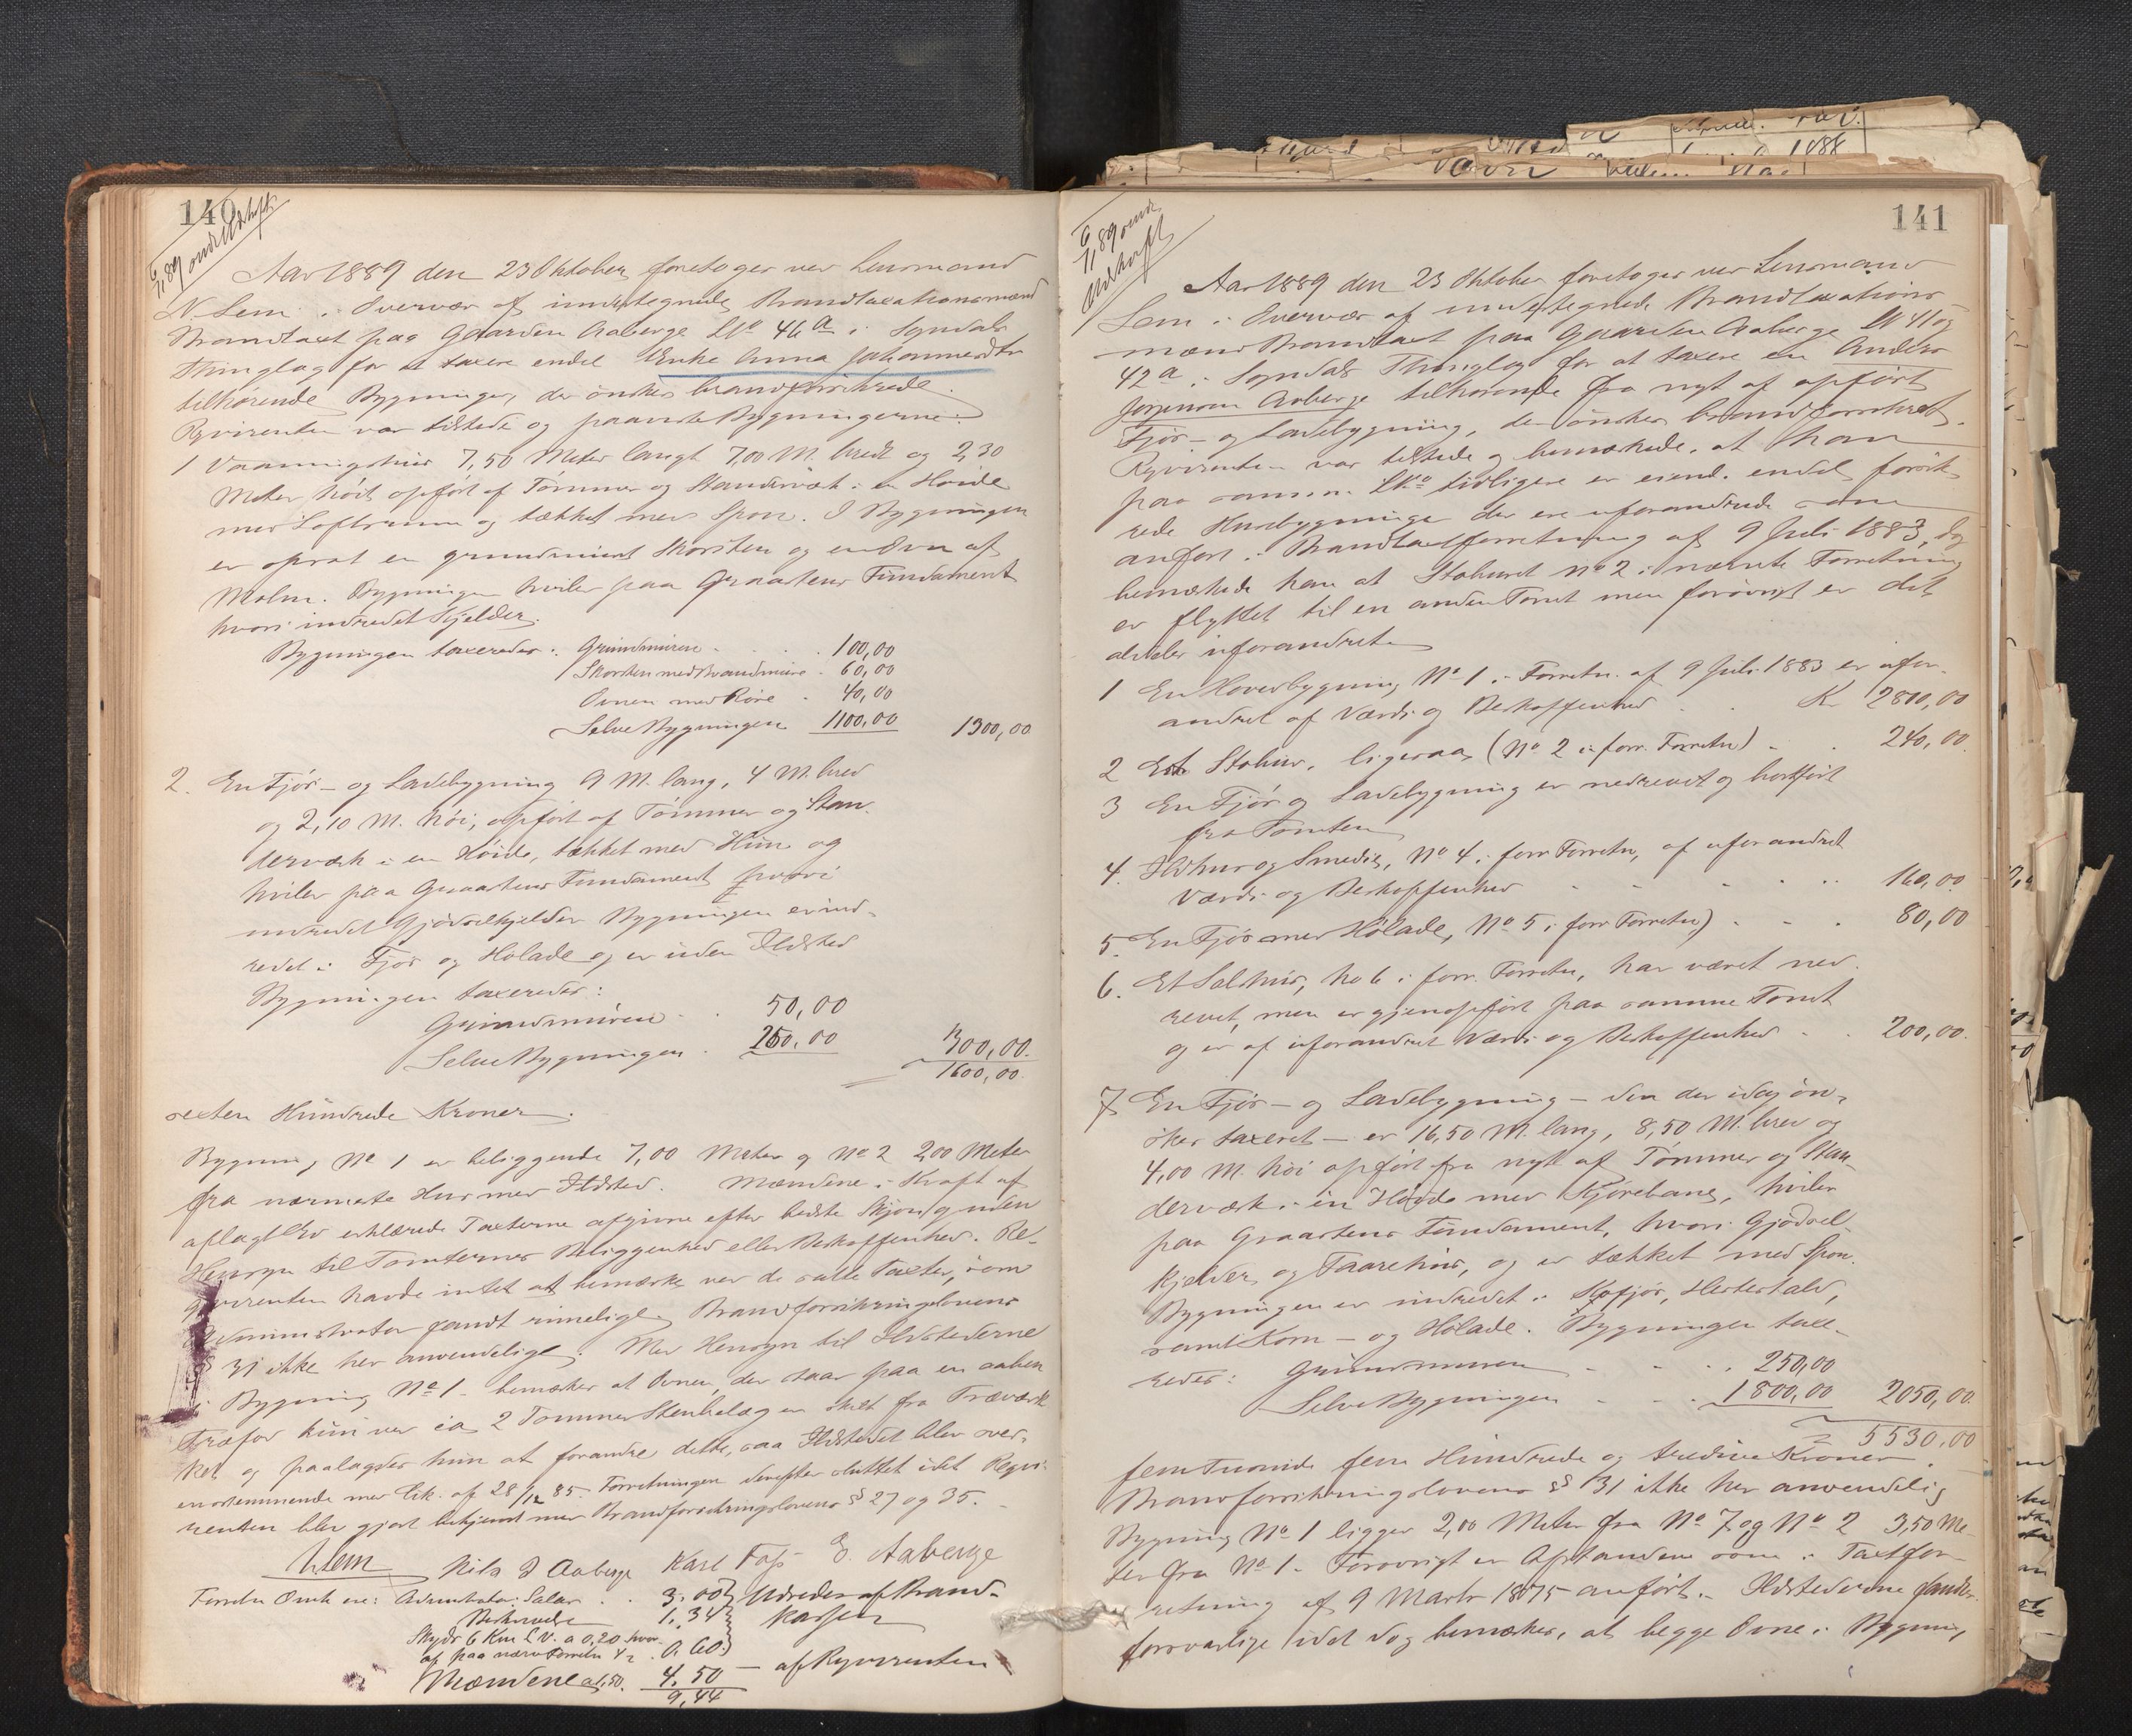 140
6/11 89 Udskrift
Aar 1889 den 23 Oktober foretoges ved Lensmand
N. Lem i Overvær af undertegnede Brandtaxationsmænd
Brandtaxt paa Gaarden Aaberge LNo 46a i Sogndals
Thinglag for at taxere endel Enke Anna Johannesdtr
tilhørende Bygninger, der ønskes brandforsikrede.
Rqvirenten var tilstede og paaviste Bygningerne:
1 Vaaningshus 7,50 Meter langt 7,00 M. bredt og 2,30
Meter høit opført af Tømmer og Standværk i en Høide
med Loftsrum og tækket med Spon. I Bygningen
er opsat en grundmuret Skorsten og en Ovn af
Malm. Bygningen hviler paa Graastens Fundament
hvori indredet Kjelder.
Bygningen taxeredes: Grundmuren 100,00
Skorsten med Brandmure 60,00
Ovnen med Røre 40,00
Selve Bygningen 1100,00 1300,00
2. En Fjøs- og Ladebygning 9 M. lang, 4 M. bred
og 2,10 M. høi, opført af Tømmer og Stan-
derværk i en Høide, tækket med Hun og
hviler paa Graastens Fundament hvori
indredet Gjødselkjelder. Bygningen er ind-
redet i Fjøs og Hølade og er uden Ildsted
Bygningen taxeredes:
Grundmuren 50,00
Selve Bygningen 250,00 300,00
1600,00
sexten Hundrede Kroner.
Bygning No 1 er beliggende 7,00 Meter og No 2 2,00 Meter
fra nærmeste Hus med Ildsted. Mændene i Kraft af
aflagt Ed erklærede Taxterne afgivne efter bedste Skjøn og uden
Hensyn til Tomternes Beliggenhed eller Beskaffenhed. Re-
qvirenten havde intet at bemærke ved de satte Taxter, som
Administrator fandt rimelige. Brandforsikringslovens
§ 31 ikke her anvendelig. Med Hensyn til Ildstederne
i Bygning No 1 bemærkes at Ovnen, der staar paa en aaben
Træfod kun ved ca 2 Tommer Stenbelæg er skilt fra Træværk
ket og paalagdes hun at forandre dette, saa Ildstedet blev over-
ensstemmende med Cirk. af 28/12 85. Forretningen derefter sluttet idet Reqvi-
renten blev gjort bekjendt med Brandforsikringslovens § 27 og 35.
N Lem Nils J Aaberge Karl Fos E. Aaberge
Forretn Omk ere: Administrator: Salær 3,00 Udredes af Brand-
Beskrivelse 1,34 kassen
Skyds 6 Km L.V. a 0,20 hvor-
af paa nærv Forretn 1/2 0,60
Mændene a 1,50. 4,50 — af Rqvirenten
9,44
141
6/11 89
Udskrift
Aar 1889 den 23 Oktober foretoges ved Lensmand
Lem i Overvær af undertegnede Brandtaxations-
mænd Brandtaxt paa Gaarden Aaberge LN 41 og
42a i Sogndals Thinglag for at taxere en Anders
Jørgensen Aaberge tilhørende fra nyt af opført
Fjøs- og Ladebygning, der ønskes brandforsikret.
Rqvirenten var tilstede og bemærkede, at han
paa samme LNo tidligere er eiend. endel forsik-
rede Husebygninger der ere uforandrede som
anført i Brandtaxtforretning af 9 Juli 1883, dog
bemærkede han at Staburet No 2 i nævnte Forretning
er flyttet til en anden Tomt men forøvrigt er det
aldeles uforandret.
1 En Hovedbygning No 1 i Forretn. af 9 Juli 1883 er ufor-
andret af Værdi og Beskaffenhed Kr 2800,00
2 Et Stabur, ligesaa (No 2 i forr. Forretn) 240,00
3 En Fjøs og Ladebygning er nedrevet og bortført
fra Tomten
4. Ildhus og Smedie, No 4 i forr Forretn, af uforandret
Værdi og Beskaffenhed 160,00
5. En Fjøs med Hølade, No 5 i forr Forretn) 80,00
6. Et Selshus, No 6 i forr. Forretn, har været ned-
revet, men er gjenopført paa samme Tomt
og er af uforandret Værdi og Beskaffenhed 200,00
7 En Fjøs- og Ladebygning - den der idag øn-
skes taxeret - er 16,50 M. lang, 8,50 M. bred og
4,00 M. høi opført fra nyt af Tømmer og Stan-
derværk i en Høide med Kjørebane, hviler
paa Graastens Fundament, hvori Gjødsel-
kjelder og Faarehus, og er tækket med Spon.
Bygningen er indredet i Kofjøs, Hestestald,
samt Korn- og Hølade. Bygningen taxe-
redes: Grundmuren 250,00
Selve Bygningen 1800,00 2050,00
5530,00
fem Tusinde fem Hundrede og tredive Kroner.
Brandforsikringslovens § 31 ikke her anvendelig
Bygning No 1 ligger 2,00 Meter fra No 7 og No 2 3,50 Me-
ter fra No 1. Forøvrigt er Afstandene som i Taxtfor-
retning af 9 Marts 1875 anført. Ildstederne fandtes
forsvarlige idet dog bemærkes, at begge Ovne i Bygning